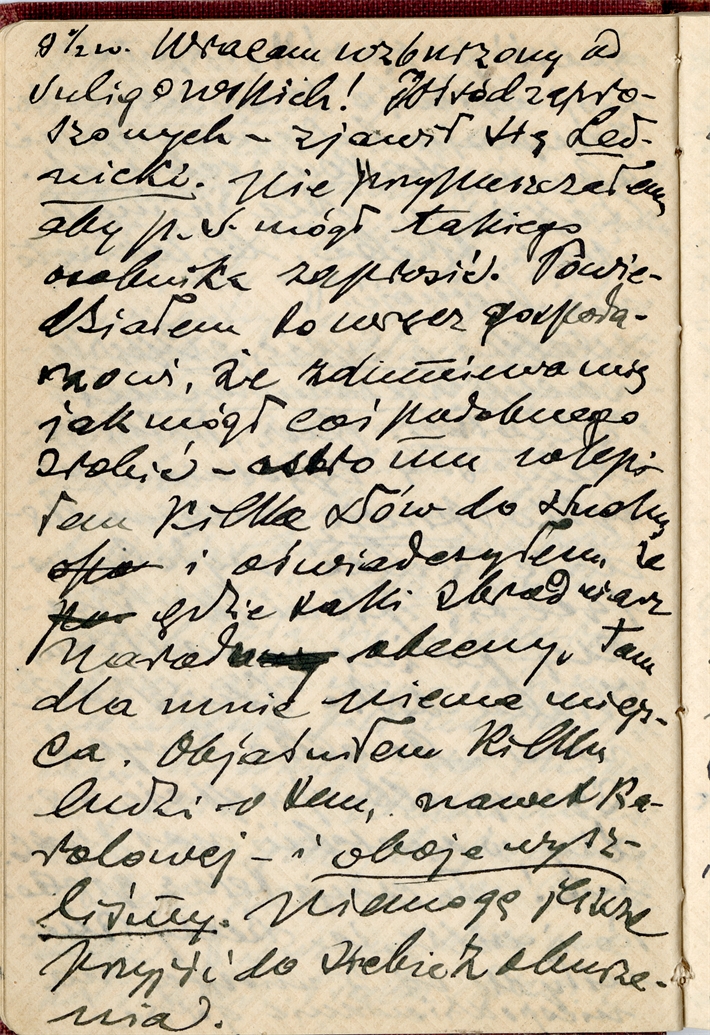 9 ½ w. Wracam wzburzony od
Suligowskich! Wśród zapro-
szonych – zjawił się Led-
nicki. Nie przypuszczałem
aby p. S. mógł takiego
osobnika zaprosić. Powie-
działem to wręcz gospoda-
rzowi, że zdumiewa mię
jak mógł coś podobnego
zrobić – ostro mu
kilka słów do słuchu
i oświadczyłem, że
gdzie taki zbrodniarz
Narodu obecny, tam
dla mnie niema miejs-
ca. Objaśniłem kilku
ludzi o tem, nawet Ka-
rolowej – i oboje wysz-
liśmy. Niemogę jeszcze
przyjść do siebie z oburze-
nia.